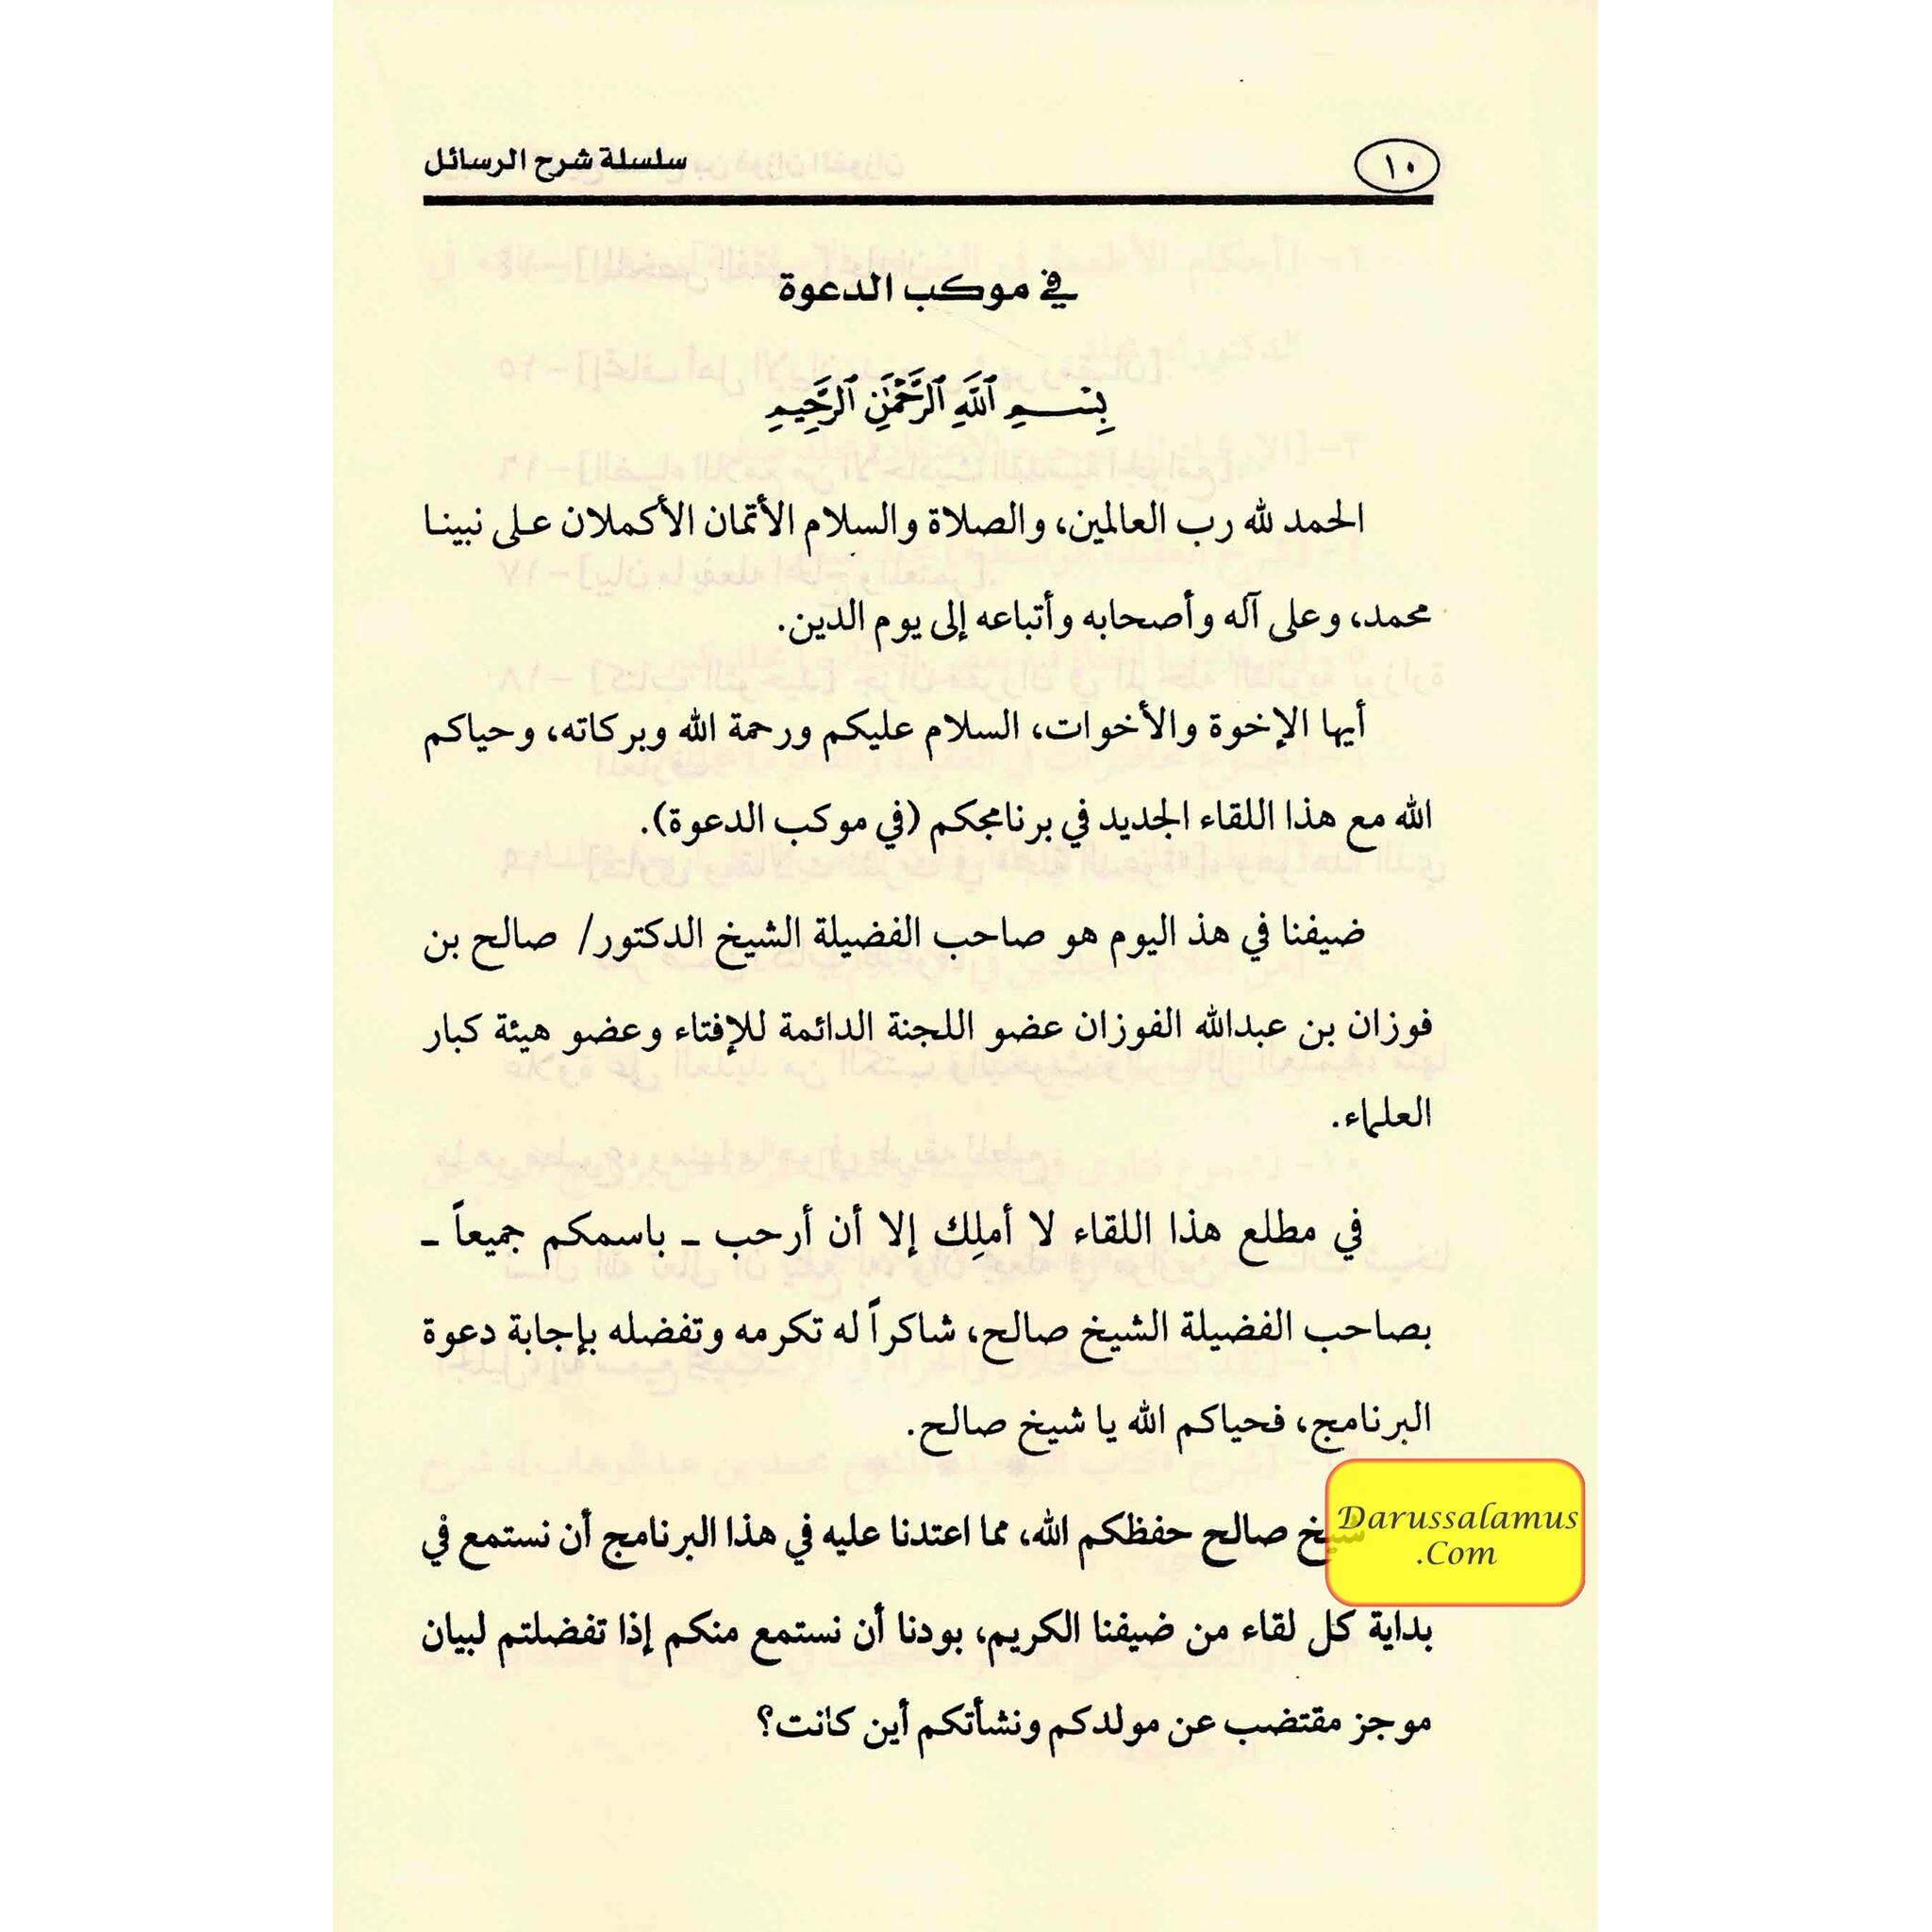 ١٠
سلسلة شرح الرسائل
في موكب الدعوة
بِسْمِ ٱللَّهِ ٱلرَّحْمَٰنِ ٱلرَّحِيمِ
الحمد لله رب العالمين، والصلاة والسلام الأتمان الأكملان على نبينا
محمد، وعلى آله وأصحابه وأتباعه إلى يوم الدين.
أيها الإخوة والأخوات، السلام عليكم ورحمة الله وبركاته، وحياكم
الله مع هذا اللقاء الجديد في برنامجكم (في موكب الدعوة).
ضيفنا في هذ اليوم هو صاحب الفضيلة الشيخ الدكتور/ صالح بن
فوزان بن عبدالله الفوزان عضو اللجنة الدائمة للإفتاء وعضو هيئة كبار
العلماء.
في مطلع هذا اللقاء لا أملِك إلا أن أرحب ـ باسمكم جميعاً ـ
بصاحب الفضيلة الشيخ صالح، شاكراً له تكرمه وتفضله بإجابة دعوة
البرنامج، فحياكم الله يا شيخ صالح.
شيخ صالح حفظكم الله، مما اعتدنا عليه في هذا البرنامج أن نستمع في
بداية كل لقاء من ضيفنا الكريم، بودنا أن نستمع منكم إذا تفضلتم لبيان
موجز مقتضب عن مولدكم ونشأتكم أين كانت؟
Darussalamus
.Com